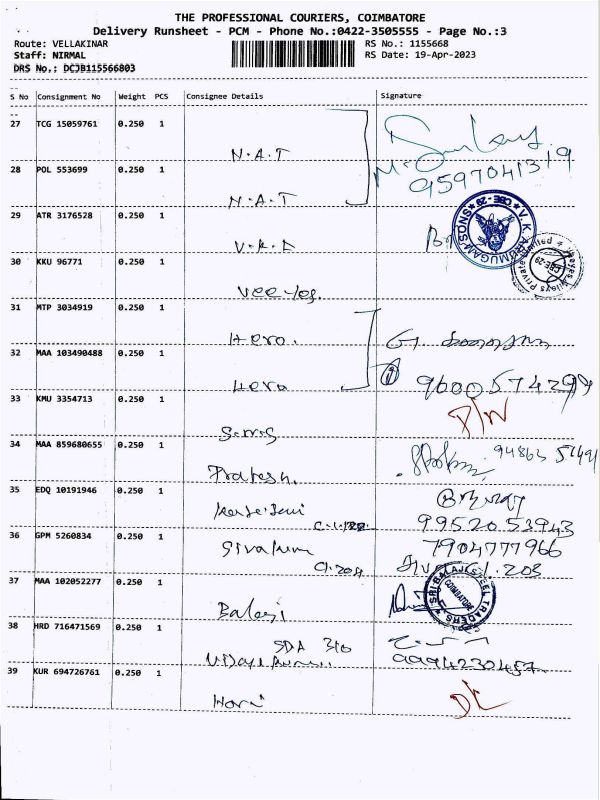 THE PROFESSIONAL COURIERS, COIMBATORE
Delivery Runsheet - PCM - Phone No.:0422-3505555 - Page No.:3
Route: VELLAKINAR
RS No.: 1155668
Staff: NIRMAL
RS Date: 19-Apr-2023
DRS No.: DCJB115566803
S No Consignment No Weight PCS Consignee Details Signature
27 TCG 15059761 0.250 1
N.A.T
9597041319
28 POL 553699 0.250 1
N.A.T
29 ATR 3176528 0.250 1
V.K.ARUMUGAM SONS CBE-29
30 KKU 96771 0.250 1
Private Limited
CBE-29
31 MTP 3034919 0.250 1
Hero.
32 MAA 103490488 0.250 1
Hero
9600574299
33 KMU 3354713 0.250 1
34 MAA 859680655 0.250 1
Prakash.
35 EDQ 10191946 0.250 1
99520.53943
36 GPM 5260834 0.250 1
Sivakumar
7904777966
37 MAA 102052277 0.250 1
Balaji
SRI BALAJI STEEL TRADERS
COIMBATORE
38 HRD 716471569 0.250 1
SDA 310
9994230457
39 KUR 694726761 0.250 1
Hari